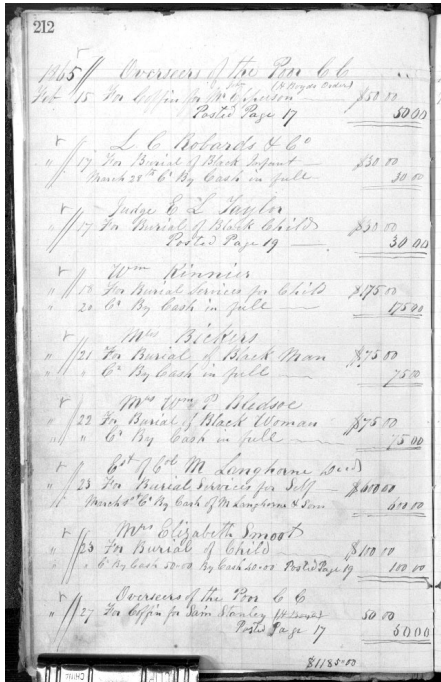 212
1865 Overseers of the Poor C C
Feb 15 For Coffin for Mr Epperson $50.00
Posted Page 17 50 00
L C Robards & Co
" 17 For Burial of Black Infant $30.00
March 28th Cr By Cash in full 30 00
Judge E L Taylor
" 17 For Burial of Black Child $30 00
Posted Page 19 30 00
Wm Kinnier
" 18 For Burial Services for Child $175 00
" 20 Cr By Cash in full 175 00
Mrs Bickers
" 21 For Burial of Black Man $75 00
" " Cr By Cash in full 75 00
Mrs Wm P Bledsoe
" 22 For Burial of Black Woman $75 00
" " Cr By Cash in full 75 00
Est of Col M Langhorne Decd
" 23 For Burial Services for Self $600 00
March Cr By Cash of M Langhorne & Son 600 00
Mrs Elizabeth Smoot
" 23 For Burial of Child $100 00
" " Cr By Cash 50.00 By Cash 40.00 Posted Page 19 100 00
Overseers of the Poor C C
" 27 For Coffin for Sam Stanley 50 00
Posted Page 17 50 00
$1185.00